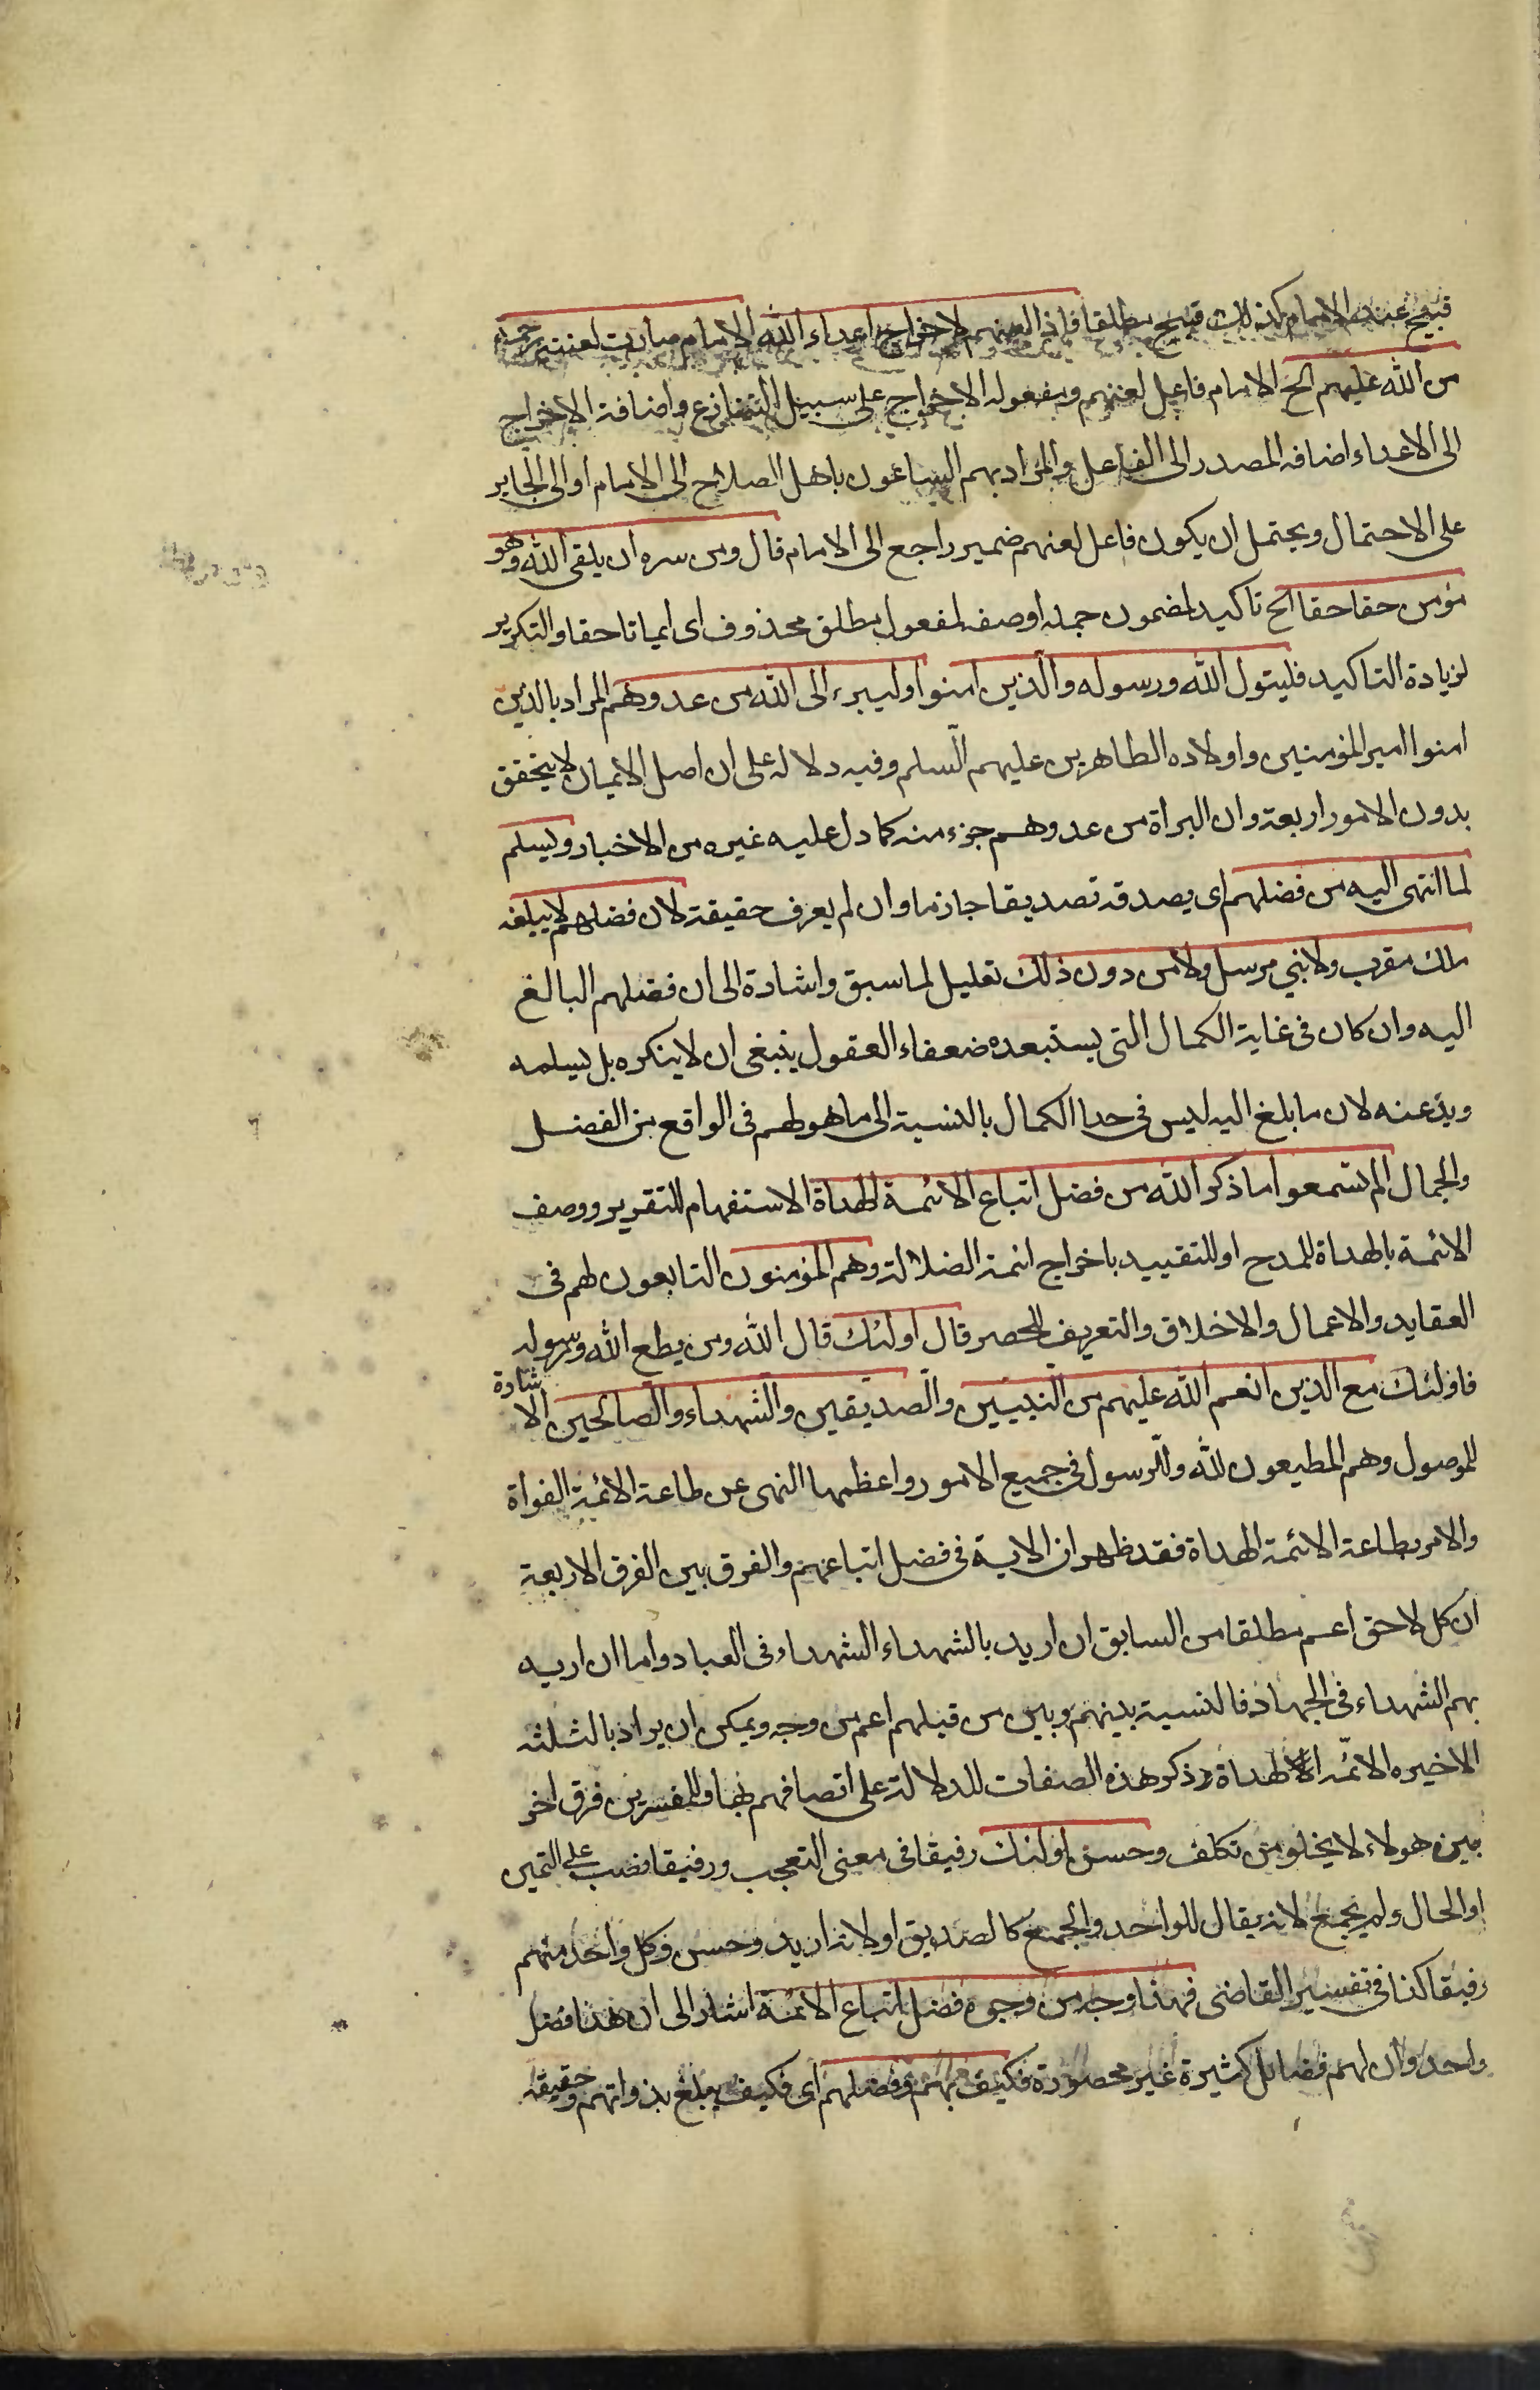 قبيح عند الامام كذلك قبيح مطلقا فاذا لعنهم لاخراج اعداء الله الامام صارت لعنته رحمة
من الله عليهم الخ الامام فاعل لعنهم ومفعوله الاخراج على سبيل التنازع واضافة الاخراج
الى الاعداء اضافه المصدر الى الفاعل والمراد بهم الساعون باهل الصلاح الى الامام او الى الجاير
على الاحتمال ويحتمل ان يكون فاعل لعنهم ضمير راجع الى الامام قال ومن سره ان يلقى الله وهو
مؤمن حقا حقا الخ تاكيد لمضمون جمله او صفه لمفعول مطلق محذوف اى ايمانا حقا والتكرير
لزيادة التاكيد فليتول الله ورسوله والذين امنوا وليبرء الى الله من عدوهم المراد بالذين
امنوا امير المؤمنين واولاده الطاهرين عليهم السلم وفيه دلاله على ان اصل الايمان لا يتحقق
بدون الامور اربعة وان البراة من عدوهم جزء منه كما دل عليه غيره من الاخبار ويسلم
لما انتهى اليه من فضلهم اى يصدقه تصديقا جازما وان لم يعرف حقيقته لان فضلهم لا يبلغه
ملك مقرب ولا نبي مرسل ولا من دون ذلك تعليل لما سبق واشارة الى ان فضلهم البالغ
اليه وان كان فى غاية الكمال التى يستبعده ضعفاء العقول ينبغى ان لا ينكره بل يسلمه
ويذعنه لان ما بلغ اليه ليس فى حد الكمال بالنسبة الى ما هو لهم فى الواقع من الفضل
والجمال الم تسمعوا ما ذكر الله من فضل اتباع الائمة الهداة الاستفهام للتقرير ووصف
الائمة بالهداة للمدح او للتقييد باخراج ائمة الضلالة وهم المؤمنون التابعون لهم فى
العقايد والاعمال والاخلاق والتعريف للحصر قال اولئك قال الله ومن يطع الله ورسوله
فاولئك مع الذين انعم الله عليهم من النبيين والصديقين والشهداء والصالحين الاشارة
للموصول وهم المطيعون لله وللرسول فى جميع الامور واعظمها النهى عن طاعة الائمة الغواة
والامر بطاعة الائمة الهداة فقد ظهر ان الاية فى فضل اتباعهم والفرق بين الفرق الاربعة
ان كل لاحق اعم مطلقا من السابق ان اريد بالشهداء الشهداء فى العباد واما ان اريد
بهم الشهداء فى الجهاد فالنسبة بينهم وبين من قبلهم اعم من وجه ويمكن ان يراد بالثلثه
الاخيره الائمه الهداة وذكر هذه الصفات للدلالة على اتصافهم بها وللمفسرين فرق اخر
بين هولاء لا يخلو من تكلف وحسن اولئك رفيقا فى معنى التعجب ورفيقا نصب على التميز
او الحال ولم يجمع لانه يقال للواحد والجمع كالصديق او لانه اريد وحسن كل واحد منهم
رفيقا كذا فى تفسير القاضى فهذا وجه من وجوه فضل اتباع الائمة اشار الى ان هذا فضل
واحد وان لهم فضائل كثيرة غير محصورة فكيف بهم وفضلهم اى فكيف يبلغ بذواتهم وحقيقة